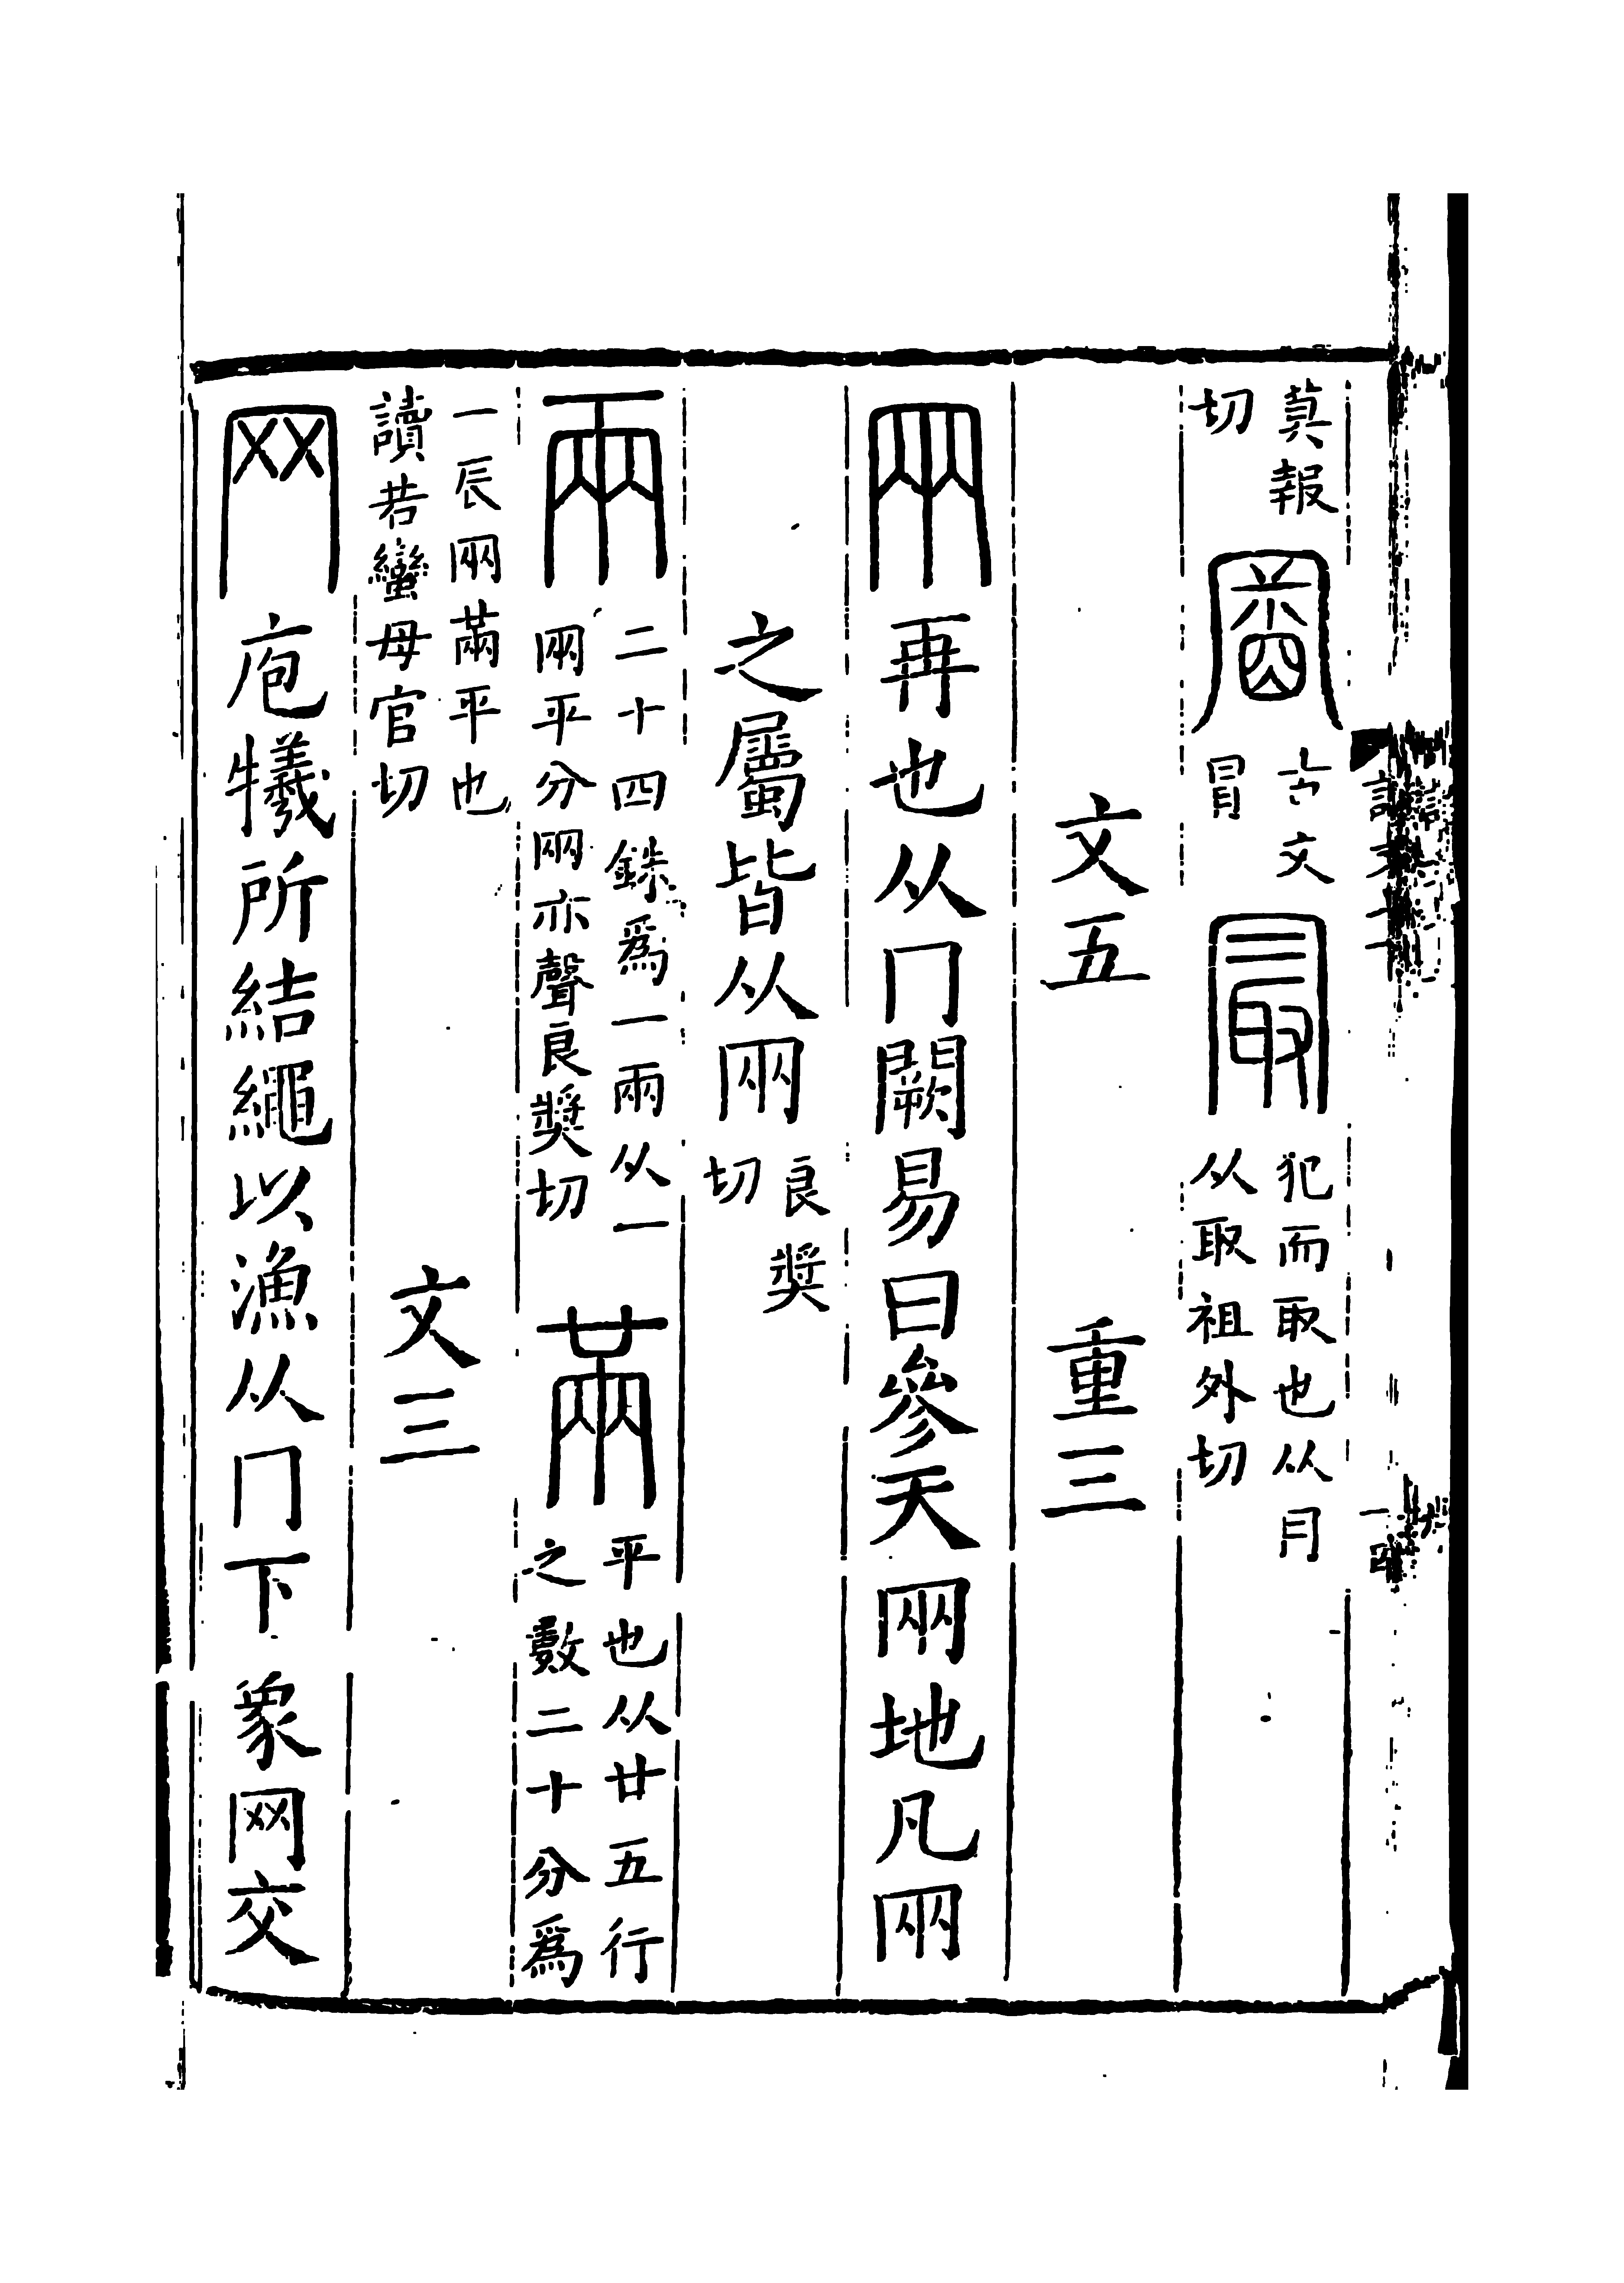 莫報切 𡇒 古文冒 最 犯而取也从冃从取祖外切
文五 重三
㒳 再也从冂闕易曰參天㒳地凡㒳
之屬皆从㒳 良奬切
兩 二十四銖爲一兩从一㒳平分㒳亦聲良奬切 㒼 平也从廿五行之數二十分爲
一辰㒳㒼平也讀若蠻母官切 文三
网 庖犧所結繩以漁从冂下象网交